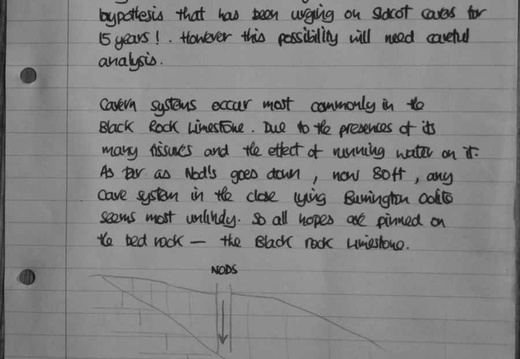 hypothesis that has been urging on Sidcot caves for
15 years!. However this possibility will need careful
analysis.
Cavern systems occur most commonly in the
Black Rock Limestone. Due to the presences of its
many fissures and the effect of running water on it.
As far as Nod's goes down, now 80ft, any
cave system in the close lying Burrington Oolite
seems most unlikely. So all hopes are pinned on
the bed rock — the Black rock Limestone.
NODS